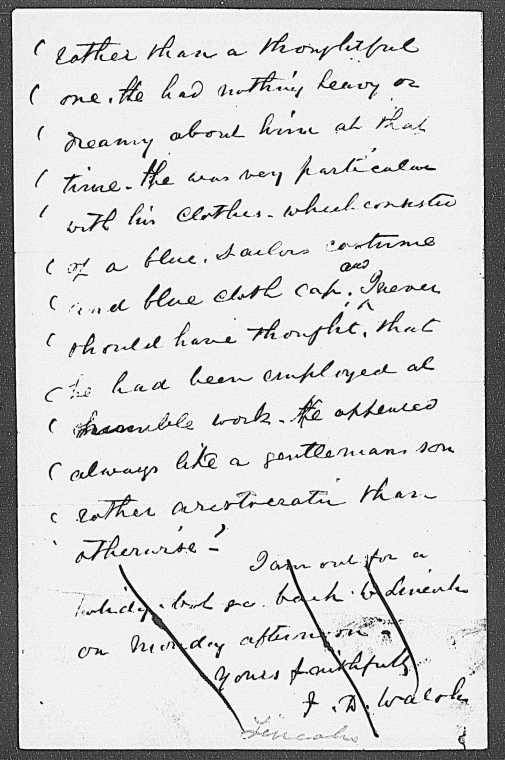 ( rather than a thoughtful
( one. He had nothing heavy or
( dreamy about him at that
( time. He was very particular
( with his clothes - which consisted
( of a blue, sailors costume
( and blue cloth cap. and I never
( should have thought, that
( he had been employed at
( humble work. He appeared
( always like a gentlemans son
( rather aristocratic than
' otherwise!
I am out for a
holiday. but go back to Lincoln
on Monday afternoon -
Yours faithfully
J. D. Walsh
Lincoln